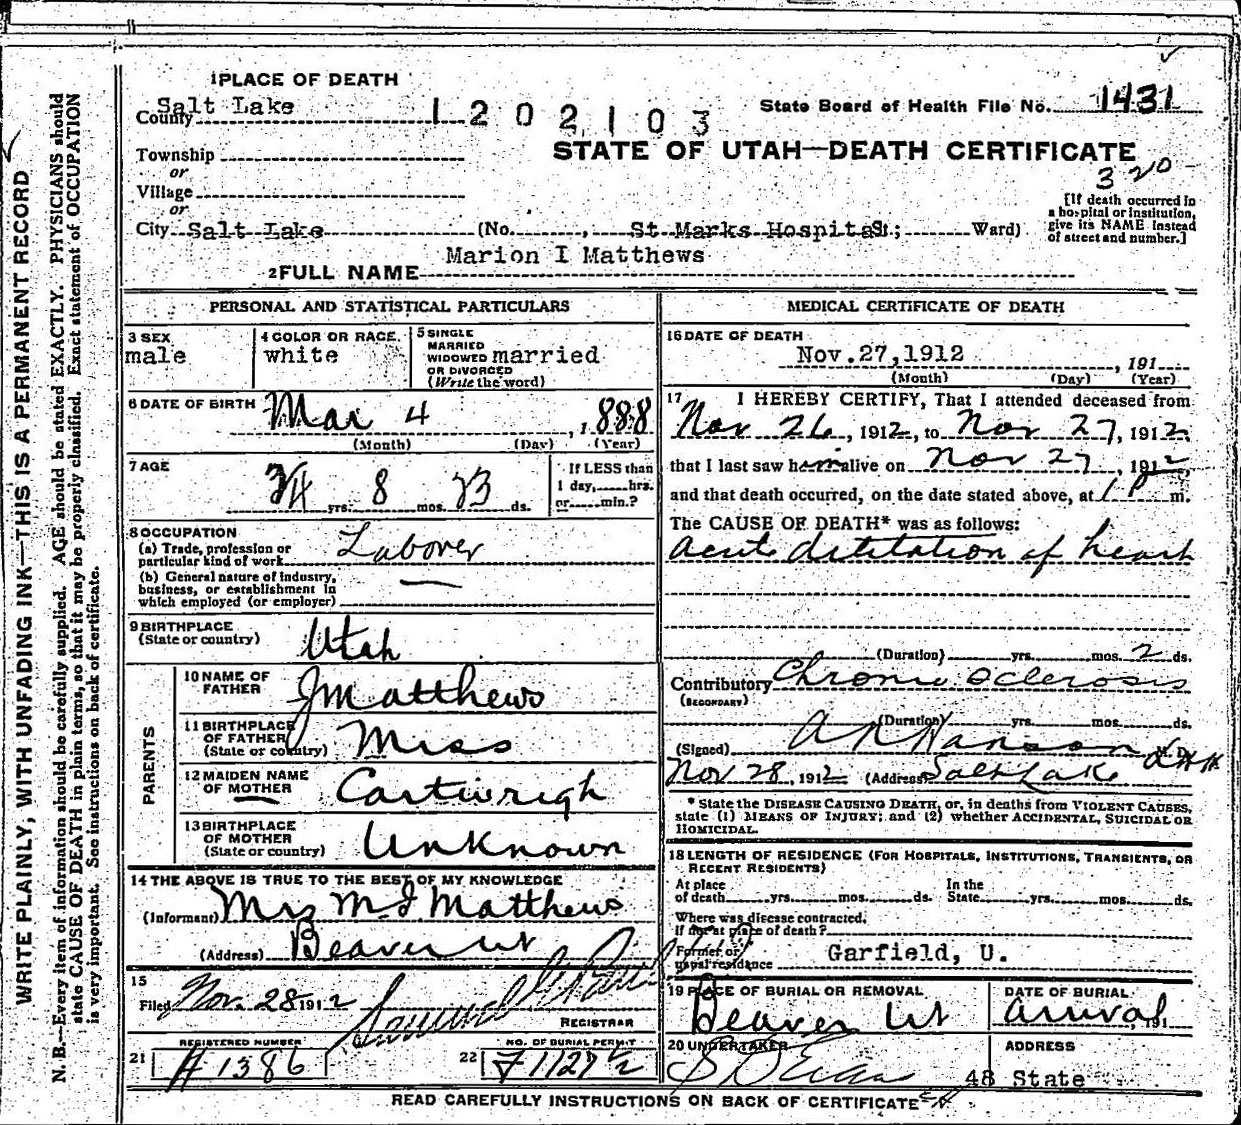 1 PLACE OF DEATH
County Salt Lake
1202103
State Board of Health File No. 1431
STATE OF UTAH—DEATH CERTIFICATE
320
Township
or
Village
or
City Salt Lake (No. , St Marks Hospital St; Ward)
[If death occurred in a hospital or institution, give its NAME instead of street and number.]
2 FULL NAME Marion I Matthews
PERSONAL AND STATISTICAL PARTICULARS
3 SEX
male
4 COLOR OR RACE
white
5 SINGLE
MARRIED
WIDOWED married
OR DIVORCED
(Write the word)
6 DATE OF BIRTH Mar 4 , 1888
(Month) (Day) (Year)
7 AGE
yrs. 8 mos. 23 ds.
If LESS than
1 day, hrs.
or min.?
8 OCCUPATION
(a) Trade, profession or
particular kind of work Laborer
(b) General nature of industry,
business, or establishment in
which employed (or employer)
9 BIRTHPLACE
(State or country) Utah
PARENTS
10 NAME OF
FATHER J Matthews
11 BIRTHPLACE
OF FATHER
(State or country) Miss
12 MAIDEN NAME
OF MOTHER Cartwrigh
13 BIRTHPLACE
OF MOTHER
(State or country) Unknown
14 THE ABOVE IS TRUE TO THE BEST OF MY KNOWLEDGE
(Informant) Mrs M I Matthews
(Address) Beaver Ut
15
Filed Nov. 28 1912
REGISTRAR
REGISTERED NUMBER
21 # 1386
NO. OF BURIAL PERMIT
22
MEDICAL CERTIFICATE OF DEATH
16 DATE OF DEATH
Nov. 27, 1912 , 191
(Month) (Day) (Year)
17 I HEREBY CERTIFY, That I attended deceased from
Nov 26, 1912, to Nov 27, 1912,
that I last saw him alive on Nov 27, 1912,
and that death occurred, on the date stated above, at 1 P m.
The CAUSE OF DEATH* was as follows:
Acute diltitation of heart
(Duration) yrs. mos. 2 ds.
Contributory Chronic Sclerosis
(SECONDARY)
(Duration) yrs. mos. ds.
(Signed) A N Hanson
Nov 28, 1912 (Address) Salt Lake
* State the DISEASE CAUSING DEATH, or, in deaths from VIOLENT CAUSES,
state (1) MEANS OF INJURY; and (2) whether ACCIDENTAL, SUICIDAL OR
HOMICIDAL.
18 LENGTH OF RESIDENCE (FOR HOSPITALS, INSTITUTIONS, TRANSIENTS, OR
RECENT RESIDENTS)
At place
of death yrs. mos. ds.
In the
State yrs. mos. ds.
Where was disease contracted,
If not at place of death?
Former or
usual residence Garfield, U.
19 PLACE OF BURIAL OR REMOVAL
Beaver Ut
DATE OF BURIAL
Arrival , 191
20 UNDERTAKER
ADDRESS
48 State
READ CAREFULLY INSTRUCTIONS ON BACK OF CERTIFICATE
WRITE PLAINLY, WITH UNFADING INK—THIS IS A PERMANENT RECORD
N. B.—Every item of information should be carefully supplied. AGE should be stated EXACTLY. PHYSICIANS should
state CAUSE OF DEATH in plain terms, so that it may be properly classified. Exact statement of OCCUPATION
is very important. See instructions on back of certificate.